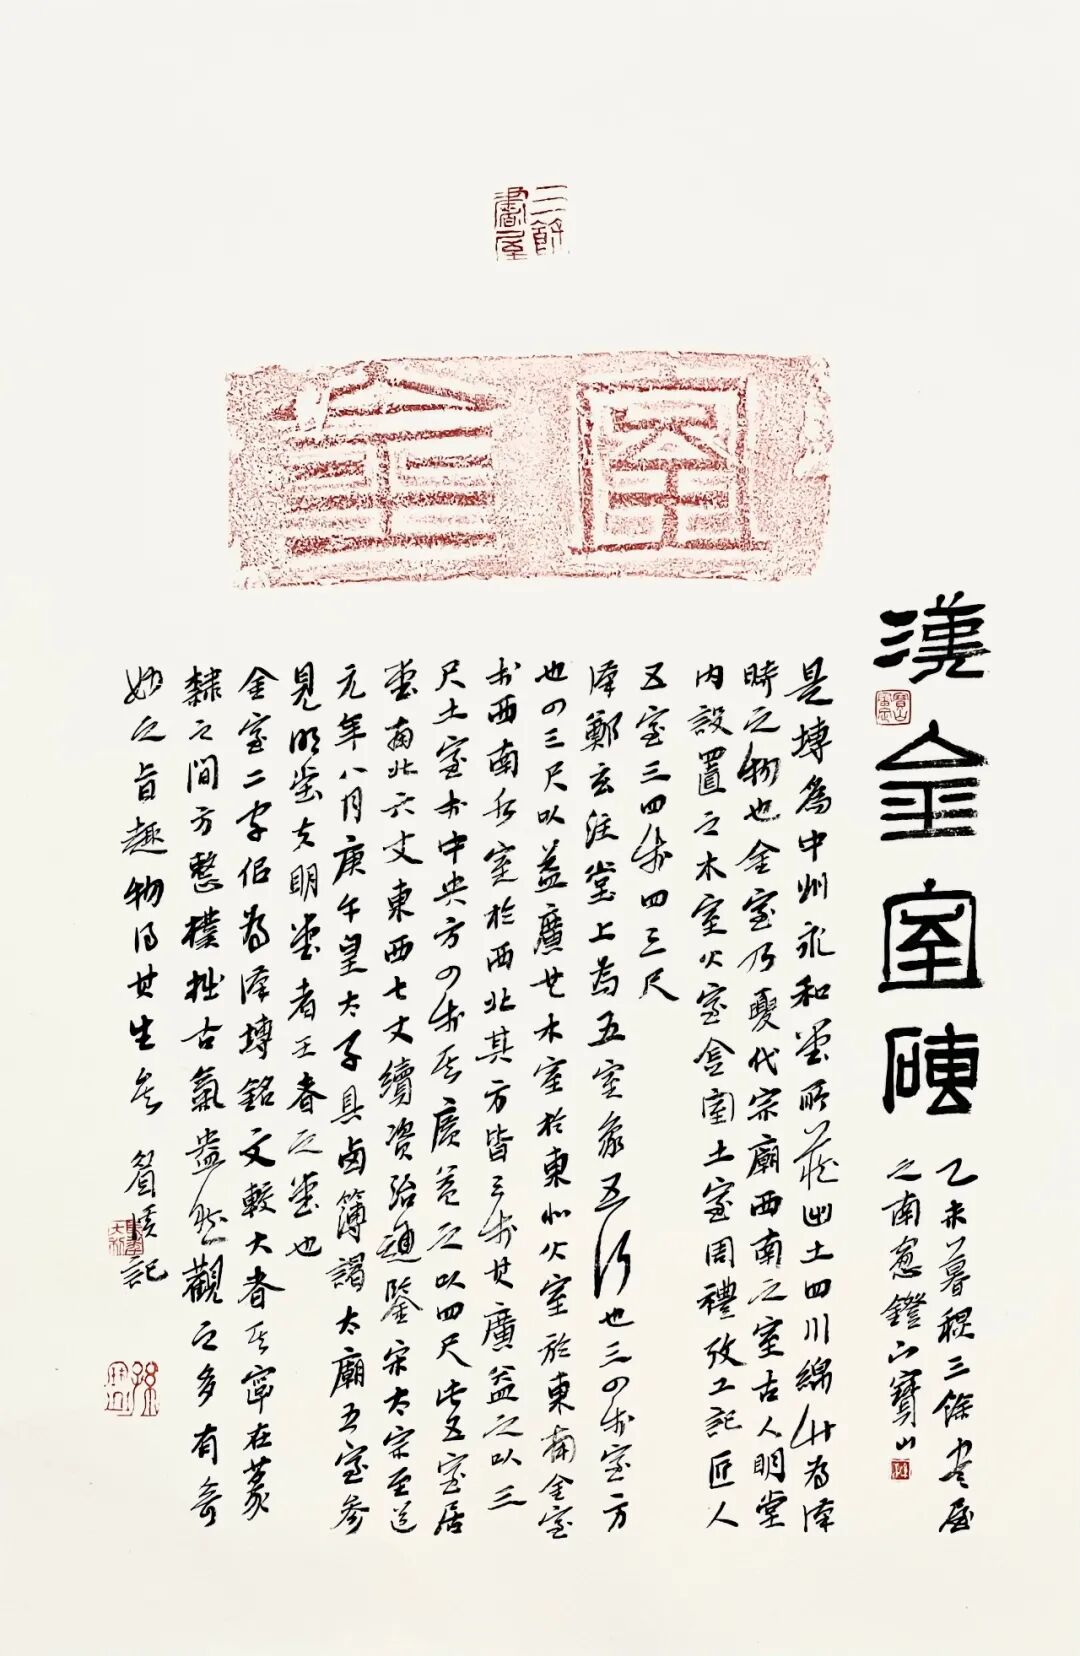 三餘書屋
金室
漢金室磚
乙未暮穐三餘書屋
之南窗鐙下寶山
是塼為中州永和堂所藏出土四川綿竹為漢
時之物也金室乃夏代宗廟西南之室古人明堂
内設置之木室火室金室土室周禮攷工記匠人
五室三四步四三尺
漢鄭玄注堂上為五室象五行也三四步室方
也四三尺以益廣也木室於東北火室於東南金室
於西南水室於西北其方皆三步其廣益之以三
尺土室於中央方四步其廣益之以四尺此五室居
堂南北六丈東西七丈續資治通鑒宋太宗至道
元年八月庚午皇太子具鹵簿謁太廟五室參
見明堂夫明堂者王者之堂也
金室二字佀為漢塼銘文較大者其字在篆
隸之間方整樸拙古氣盎然觀之多有奇
妙之旨趣物得其生矣
記
孫